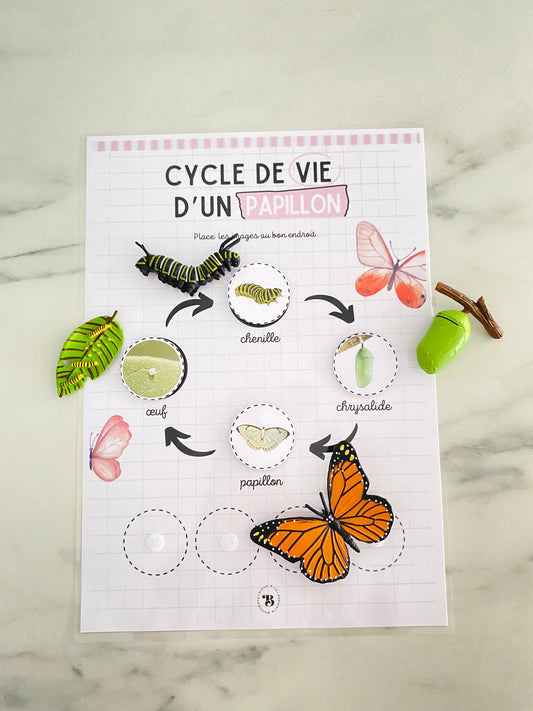 CYCLE DE VIE
D'UN PAPILLON
Place les images au bon endroit.
chenille
œuf
chrysalide
papillon
B